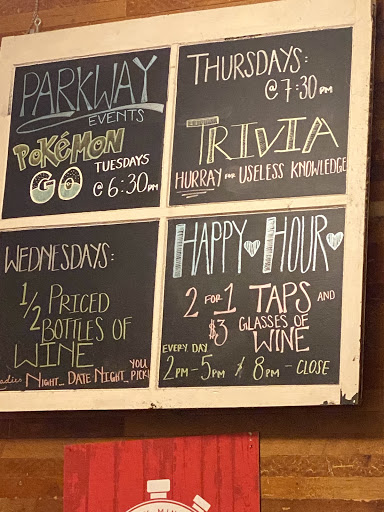 PARKWAY
EVENTS
POKéMON
GO
TUESDAYS
@ 6:30PM
THURSDAYS:
@ 7:30PM
TRIVIA
HURRAY FOR USELESS KNOWLEDGE
WEDNESDAYS:
1/2 PRICED
BOTTLES OF
WINE
Ladies NIGHT_ DATE NIGHT_ YOU PICK!
HAPPY HOUR
2 FOR 1 TAPS AND
$3 GLASSES OF
WINE
EVERY DAY
2PM-5PM & 8PM - CLOSE